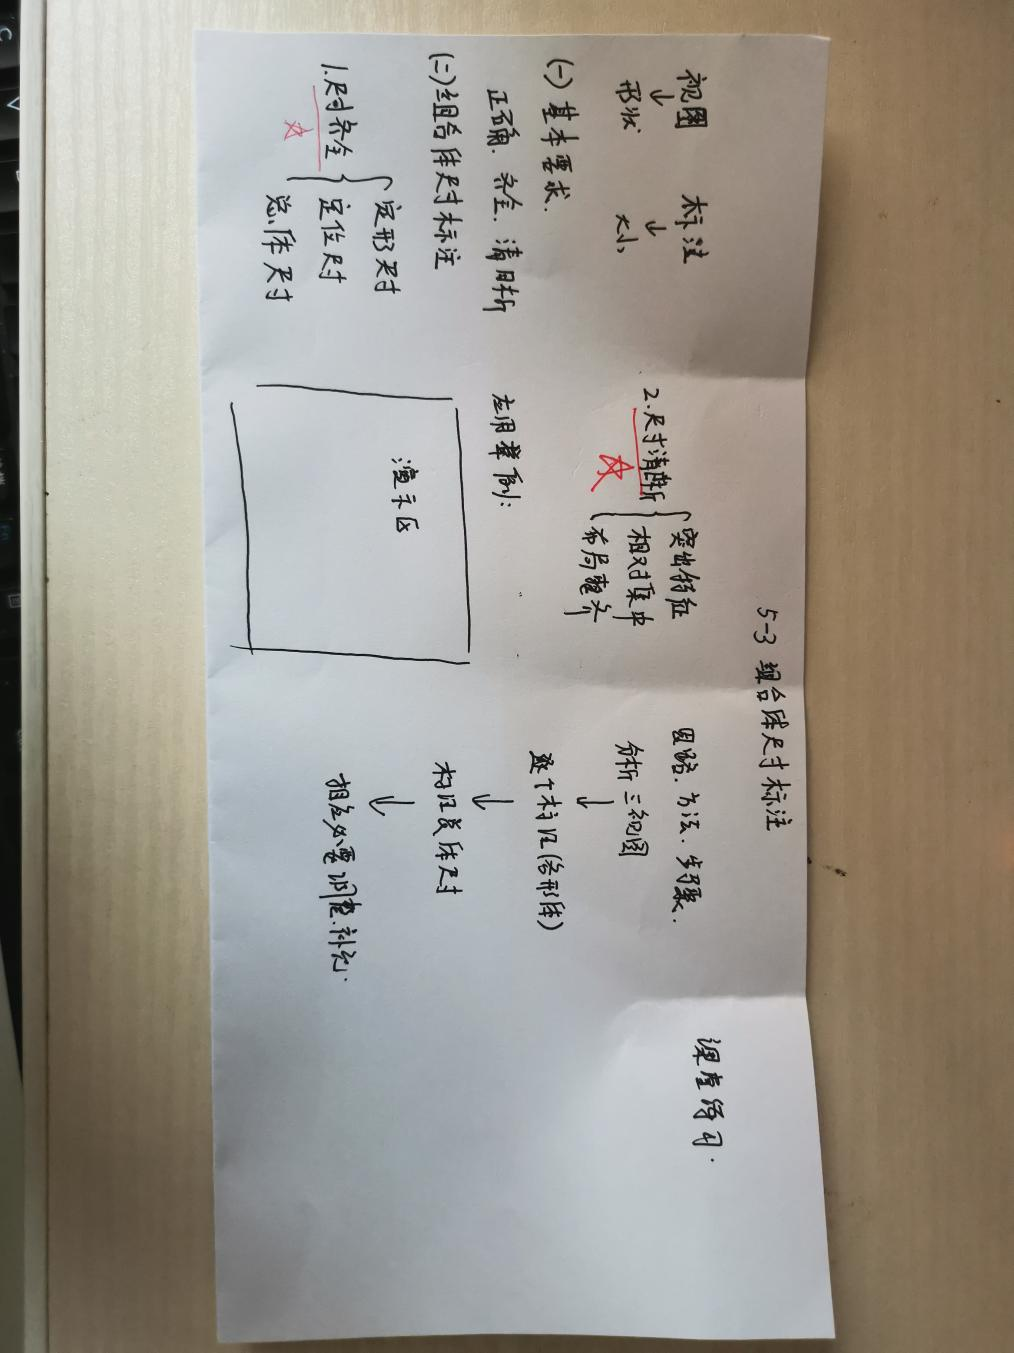 5-3 组合体尺寸标注
视图 标注
↓ ↓
形状 大小
(一)基本要求.
正确. 齐全. 清晰
(二)组合体尺寸标注
1.尺寸齐全
定形尺寸
定位尺寸
总体尺寸
2.尺寸清晰
突出特征
相对集中
布局整齐
应用举例:
演示区
思路.方法.步骤.
分析三视图
↓
逐个标注(各形体)
↓
标注总体尺寸
↓
相应必要调整.补充.
课堂练习.